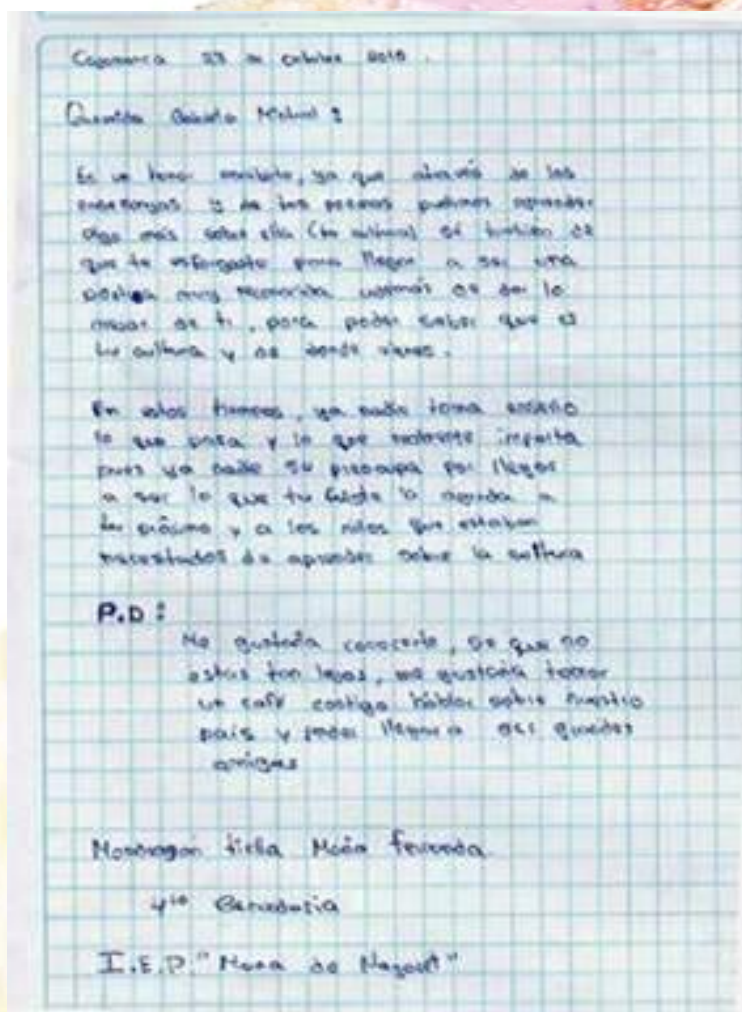 Cajamarca 23 de octubre 2018.
Querida Gabriela Mistral:
Es un honor escribirte, ya que através de las
enseñanzas y de tus poemas pudimos aprender
algo más sobre ella (tu cultura) sé también
que te esforzaste para llegar a ser una
poetisa muy reconocida además de dar lo
mejor de ti, para poder saber que es
tu cultura y de donde vienes.
En estos tiempos, ya nadie toma enserio
lo que pasa y lo que realmente importa
pues ya nadie se preocupa por llegar
a ser lo que tu fuiste la ayuda a
tu prójimo y a los niños que estaban
necesitados de aprender sobre la cultura
P.D:
Me gustaría conocerte, se que no
estas tan lejos, me gustaría tomar
un café contigo hablar sobre nuestro
país y poder llegar a ser grandes
amigas
Mondragon ticlla María fernanda
4to Secundaria
I.E.P. "María de Nazaret"